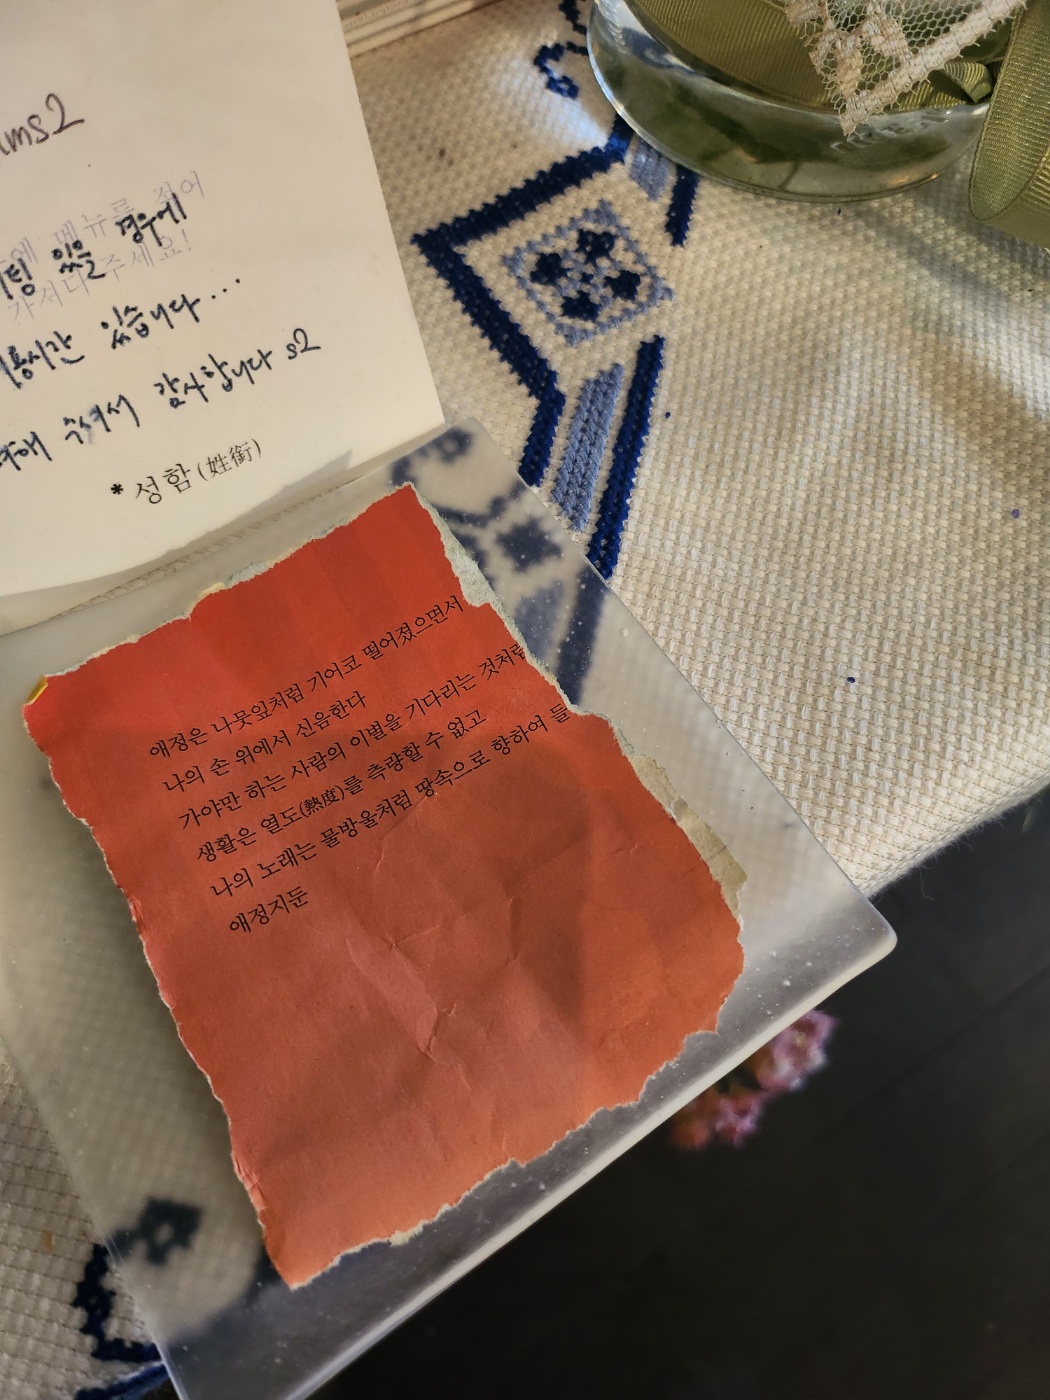 ms2
메뉴를 적어
주세요!
있을 경우에
있습니다...
주셔서 감사합니다 s2
* 성함(姓銜)
애정은 나뭇잎처럼 기어코 떨어졌으면서
나의 손 위에서 신음한다
가야만 하는 사람의 이별을 기다리는 것처럼
생활은 열도(熱度)를 측량할 수 없고
나의 노래는 물방울처럼 땅속으로 향하여 들
애정지둔